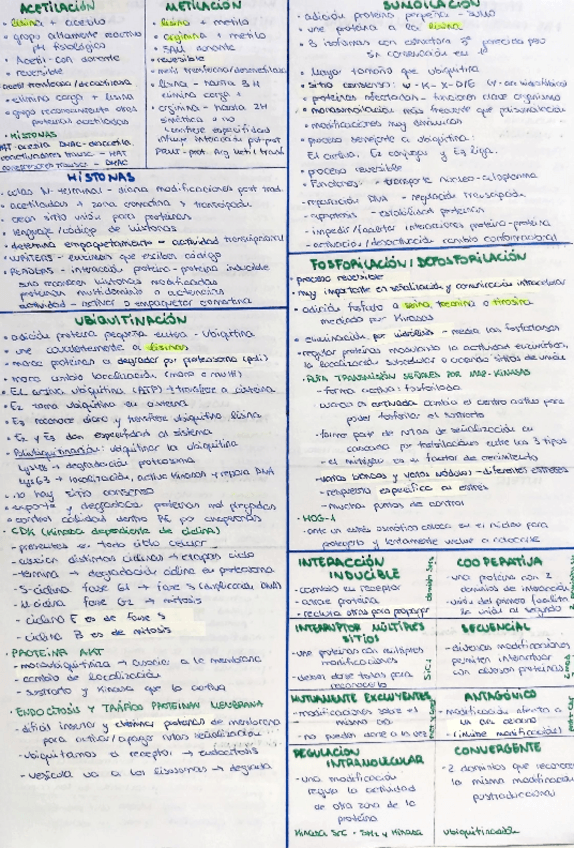 ACETILACIÓN
• lisina + acetilo
• grupo altamente reactivo
pH fisiológico
• Acetil-CoA donante
• reversible
acetil transferasa/deacetilasa
• elimina carga + lisina
• grupo reconocimiento otras
proteínas acetiladas
• HISTONAS
METILACIÓN
• lisina + metilo
• arginina + metilo
• SAM donante
• reversible
• metil transferasa/desmetilasa
• lisina - hasta 3 H
elimina carga +
• arginina - hasta 2H
simétrica o no
HISTONAS
• colas N-terminal - diana modificaciones post trad.
• acetiladas → zona cromatina
• crean sitio unión para proteínas
• lenguaje/código de histonas
• determina empaquetamiento - actividad transcripcional
• WRITERS - enzimas que escriben código
• READERS - interacción proteína-proteína inducible
proteínas multidominio
actividad - activar o empaquetar cromatina
UBIQUITINACIÓN
• adición proteína pequeña - ubiquitina
• une covalentemente a lisinas
• marca proteínas a degradar por proteasoma (poli)
• marca cambio localización (mono o multi)
• E1 activa ubiquitina (ATP) → transfiere a cisteína
• E2 toma ubiquitina en cisteína
• E3 reconoce diana y transfiere ubiquitina lisina
• E2 y E3 dan especificidad al sistema
• Poliubiquitinación: ubiquitinar la ubiquitina
Lys48 → degradación proteasoma
Lys63 → localización, activa kinasas y repara DNA
• no hay sitio consenso
• exporta y degradadas proteínas mal plegadas
• control calidad dentro RE por chaperonas
• CDK (kinasa dependiente de ciclina)
- presentes en todo ciclo celular
- asocian distintas ciclinas → etapas ciclo
- termina → degradación ciclina en proteasoma
- S-ciclina fase G1 → fase S (replicación DNA)
- M ciclina fase G2 → mitosis
- ciclina E es de fase S
- ciclina B es de mitosis
• PROTEÍNA AKT
- monoubiquitiniza → asociar a la membrana
- cambio de localización
- sustrato y kinasa que la activa
• ENDOCITOSIS Y TRÁFICO PROTEÍNAS MEMBRANA
- difícil insertar y eliminar proteínas de membrana
para activar/apagar rutas señalización
- ubiquitinamos el receptor → endocitosis
- vesícula va a los lisosomas → degrada
SUMOILACIÓN
• adición proteína pequeña - sumo
• une proteína a la lisina
• 3 isoformas con estructura 3ª parecida pero
sin conservación en
• Mayor tamaño que ubiquitina
• sitio consenso: ψ - K - X - D/E
• monosumoilación más frecuente que polisumoilación
• modificaciones muy dinámicas
• proceso semejante a ubiquitina:
E1 activa, E2 conjuga y E3 liga.
• proceso reversible
• Funciones: - transporte núcleo-citoplasma
- reparación DNA - regulación transcripción
- apoptosis - estabilidad proteínas
- impedir/facilitar interacciones proteína-proteína
- activación/desactivación cambio conformacional
FOSFORILACIÓN/DEFOSFORILACIÓN
• proceso reversible
• muy importante en señalización y comunicación intracelular
• adición fosfato a serina, treonina o tirosina
mediada por kinasas
• eliminación por hidrólisis - media las fosfatasas
• regular proteínas modulando la actividad enzimática,
la localización subcelular o creando sitios de unión
• RUTA TRANSMISIÓN SEÑALES POR MAP-KINASAS
- forma activa: fosforilada
cambia el centro activo para
poder fosforilar el sustrato
- forma parte de rutas de señalización en
cascada por fosforilaciones entre los 3 tipos
- el mitógeno es un factor de crecimiento
- varias ramas y varios módulos - diferentes estreses
- respuesta específica a estrés
- muchos puntos de control
• HOG-1
- ante un estrés osmótico coloca en el núcleo para
protegerlo y lentamente vuelve a colocarse
INTERACCIÓN
INDUCIBLE
- cambio en receptor
- atrae proteína
- recluta otras para propagar
COOPERATIVA
- una proteína con 2
dominios de interacción
- unión del primero facilita
la unión al segundo
INTERRUPTOR MÚLTIPLES
SITIOS
- una proteína con múltiples
modificaciones
- deben darse todas para
reconocerlo
Sic1
SECUENCIAL
- diversas modificaciones
permiten interactuar
con diversas proteínas
MUTUAMENTE EXCLUYENTES
- modificaciones sobre el
mismo aa
- no pueden darse a la vez
ANTAGÓNICO
- modificación afecta a
un aa cercano
- (inhibe modificación)
REGULACIÓN
INTRAMOLECULAR
- una modificación
regula la actividad
de otra zona de la
proteína
Kinasa Src - SH2 y kinasa
CONVERGENTE
- 2 dominios que reconocen
la misma modificación
postraduccional